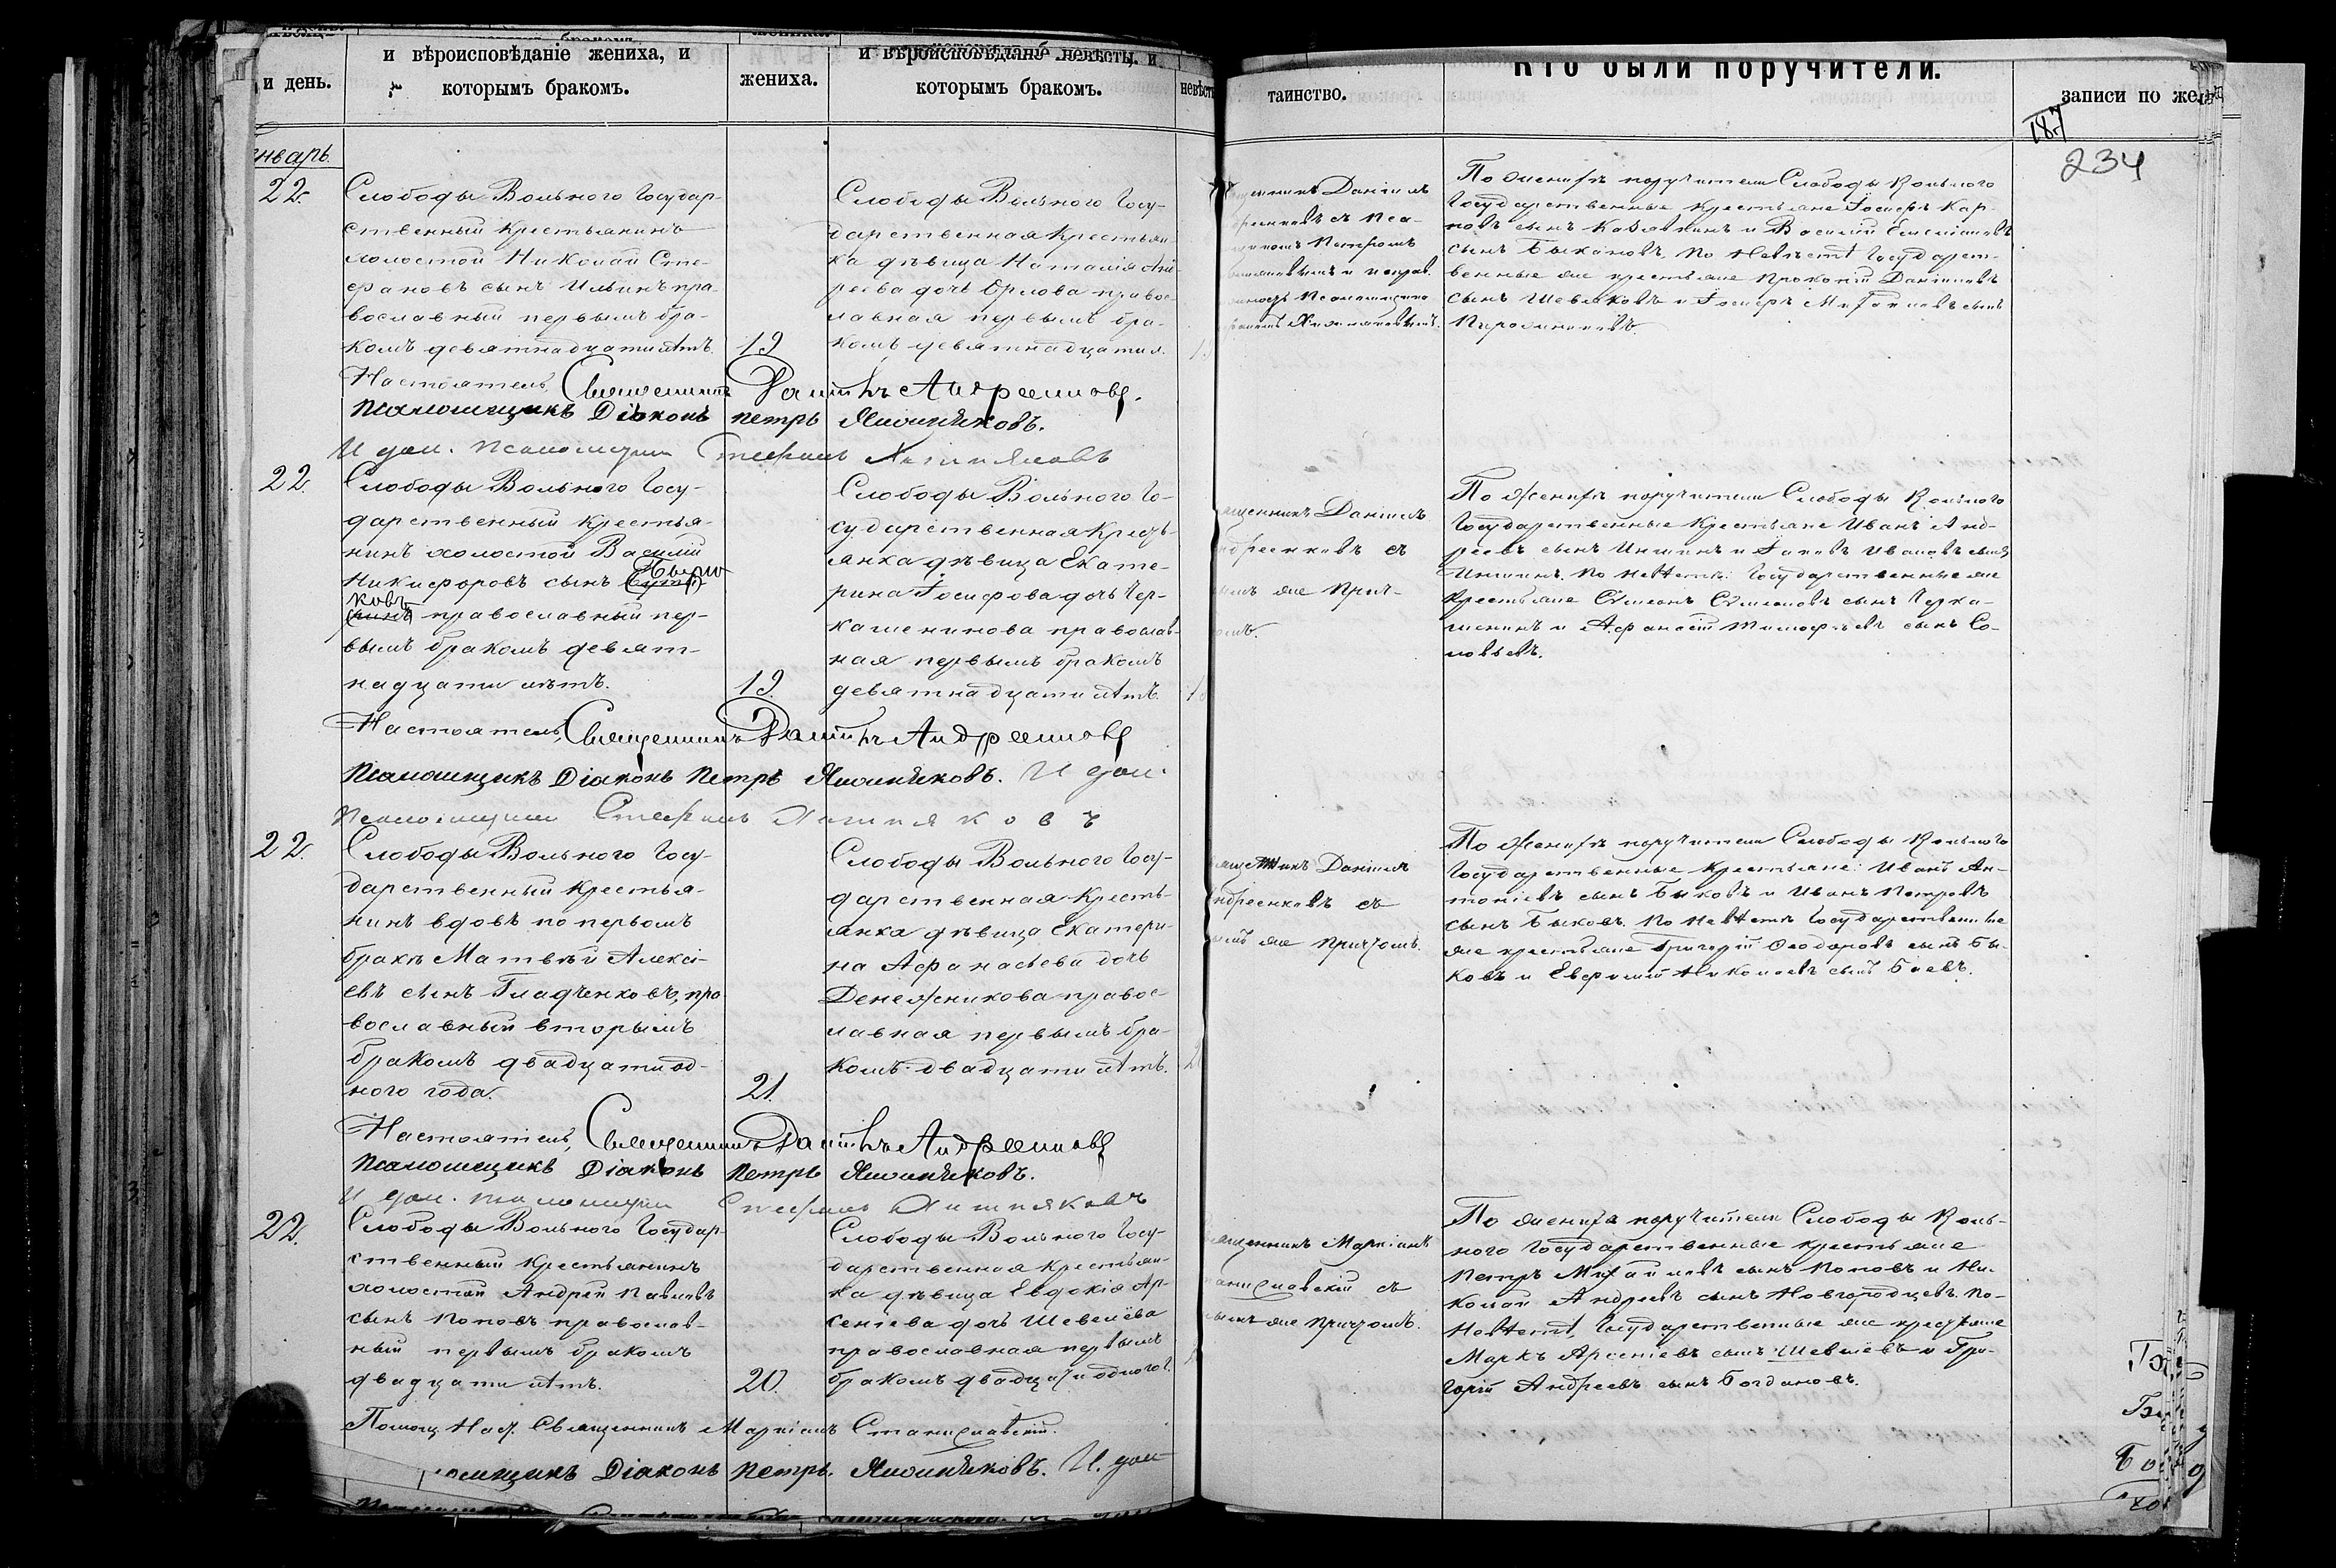 и вѣроисповѣданіе жениха, и
которымъ бракомъ.
и день.
жениха.
и вѣроисповѣданіе невѣсты, и
которымъ бракомъ.
таинство.
Кто были поручители.
записи по же
187
234
нварь.
22.
Слободы Вольного Государ-
ственный Крестьянинъ
холостой Николай Сте-
фановъ сынъ Ильинъ пра-
вославный первымъ бра-
комъ девятнадцати лѣтъ.
19
Слободы Вольного Госу-
дарственная Крестьян-
ка дѣвица Наталія Анд-
реева дочь Орлова правос-
лавная первымъ бра-
комъ девятнадцати л.
Даніилъ
съ Пса-
Петромъ
По жениху поручители Слободы Вольного
Государственные Крестьяне Іосифъ Кар-
повъ сынъ и Василій
сынъ Быкановъ, по Невѣстѣ Государст-
венные же крестьяне Прокопій Даніиловъ
сынъ Шевляковъ и Іосифъ Михаиловъ сынъ
Настоятель, Священникъ Даніилъ Андреенковъ.
Псаломщикъ Діаконъ Петръ
И дол. Псаломщика Стефанъ
22.
Слободы Вольного Госу-
дарственный Крестья-
нинъ холостой Василій
Никифоровъ сынъ
ковъ
православный пер-
вымъ бракомъ девят-
надцати лѣтъ.
19.
Слободы Вольного Го-
сударственная Кресть-
янка дѣвица Екате-
рина Іосифова дочь Чер-
кашенинова православ-
ная первымъ бракомъ
девятнадцати лѣтъ.
ященникъ Даніилъ
ндреенковъ съ
же прич-
омъ.
По Жениху поручители Слободы Вольного
Государственные Крестьяне Иванъ Анд-
реевъ сынъ Иншинъ и Іаковъ Ивановъ сынъ
Иншинъ. По Невѣстѣ: Государственные же
Крестьяне Симеонъ Симеоновъ сынъ Черка-
шенинъ и Афанасій Тимофѣевъ сынъ Со-
ловьевъ.
Настоятель, Священникъ Даніилъ Андреенковъ
Псаломщикъ Діаконъ Петръ И дол.
Псаломщика Стефанъ
22.
Слободы Вольного Госу-
дарственный Крестья-
нинъ вдовъ по первомъ
бракѣ Матвѣй Алексі-
евъ сынъ Гладченковъ, пра-
вославный вторымъ
бракомъ двадцати од-
ного года.
21.
Слободы Вольного Госу-
дарственная Кресть-
янка дѣвица Екатери-
на Афанасьева дочь
Денежникова правос-
лавная первымъ бра-
комъ двадцати лѣтъ.
Даніилъ
ндреенковъ съ
же причтомъ.
По Жениху поручители Слободы Вольного
Государственные Крестьяне: Иванъ Ан-
тоніевъ сынъ Быковъ и Иванъ Петровъ
сынъ Быковъ. По Невѣстѣ Государственные
же крестьяне Григорій Ѳеодоровъ сынъ Бы-
ковъ и Евфимій Николаевъ сынъ Боевъ.
Настоятель, Священникъ Даніилъ Андреенковъ
Псаломщикъ Діаконъ Петръ
И дол. Псаломщика Стефанъ
22.
Слободы Вольного Государ-
ственный Крестьянинъ
холостой Андрей Павловъ
сынъ Поповъ православ-
ный первымъ бракомъ
двадцати лѣтъ.
20.
Слободы Вольного Госу-
дарственная Крестьян-
ка дѣвица Евдокія Ар-
сеніева дочь Шевелёва
православная первымъ
бракомъ двадцати одного г.
ященникъ Маркіанъ
аниславскій съ
же причтомъ.
По жениху поручители Слободы Воль-
ного Государственные крестьяне
Петръ Михаиловъ сынъ Поповъ и Ни-
колай Андреевъ сынъ Новгородцевъ. По-
Невѣстѣ, Государственные же крестьяне
Маркъ Арсеніевъ сынъ Шевелёвъ и Гри-
горій Андреевъ сынъ Богдановъ.
Помощ. Наст. Священникъ Маркіанъ Станиславскій.
омщикъ Діаконъ Петръ. И. дол